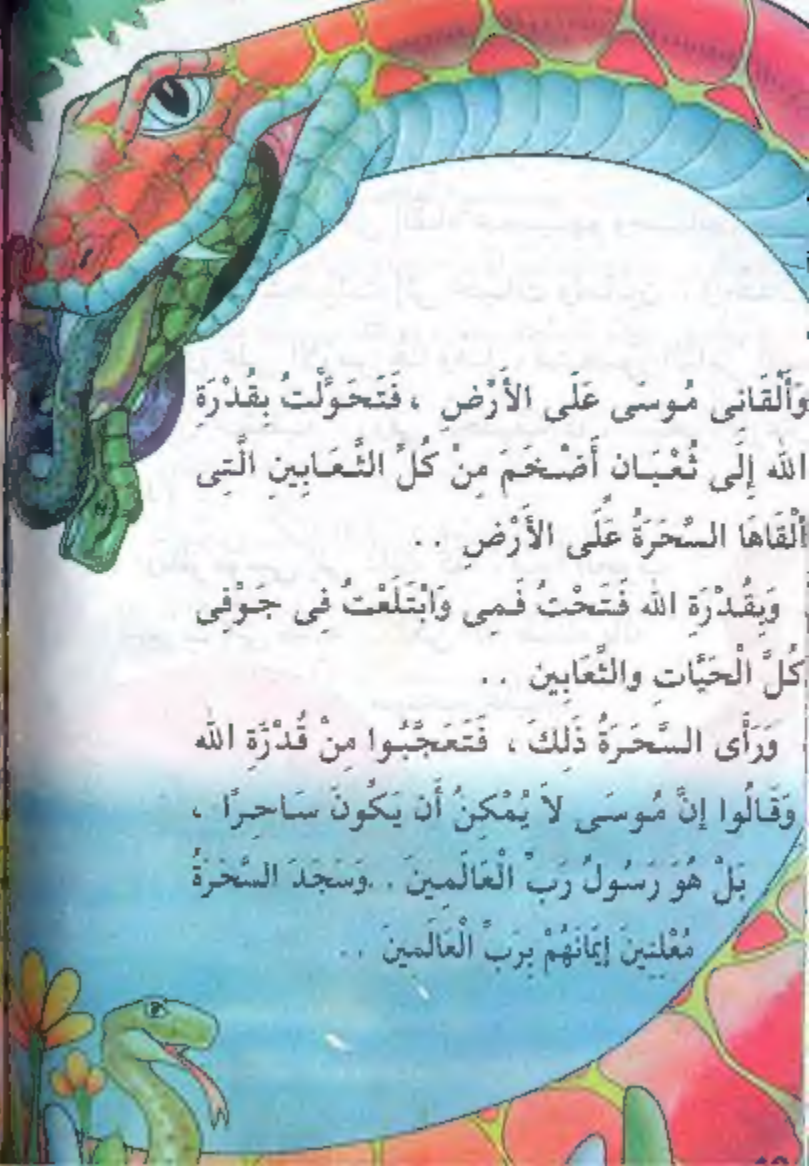 وَأَلْقَانِى مُوسَى عَلَى الأَرْضِ ، فَتَحَوَّلْتُ بِقُدْرَةِ
الله إِلَى ثُعْبَان أَضْخَمَ مِنْ كُلِّ الثَّعَابِينِ الَّتِى
أَلْقَاهَا السَّحَرَةُ عَلَى الأَرْضِ . .
وَبِقُدْرَةِ الله فَتَحْتُ فَمِى وَابْتَلَعْتُ فِى جَوْفِى
كُلَّ الْحَيَّاتِ والثَّعَابِين . .
وَرَأَى السَّحَرَةُ ذَلِكَ ، فَتَعَجَّبُوا مِنْ قُدْرَةِ الله
وَقَالُوا إِنَّ مُوسَى لاَ يُمْكِنُ أَن يَكُونَ سَاحِرًا ،
بَلْ هُوَ رَسُولُ رَبِّ الْعَالَمِينَ . . وَسَجَدَ السَّحَرَةُ
مُعْلِنِينَ إِيمَانَهُمْ بِرَبِّ الْعَالَمِينَ . .